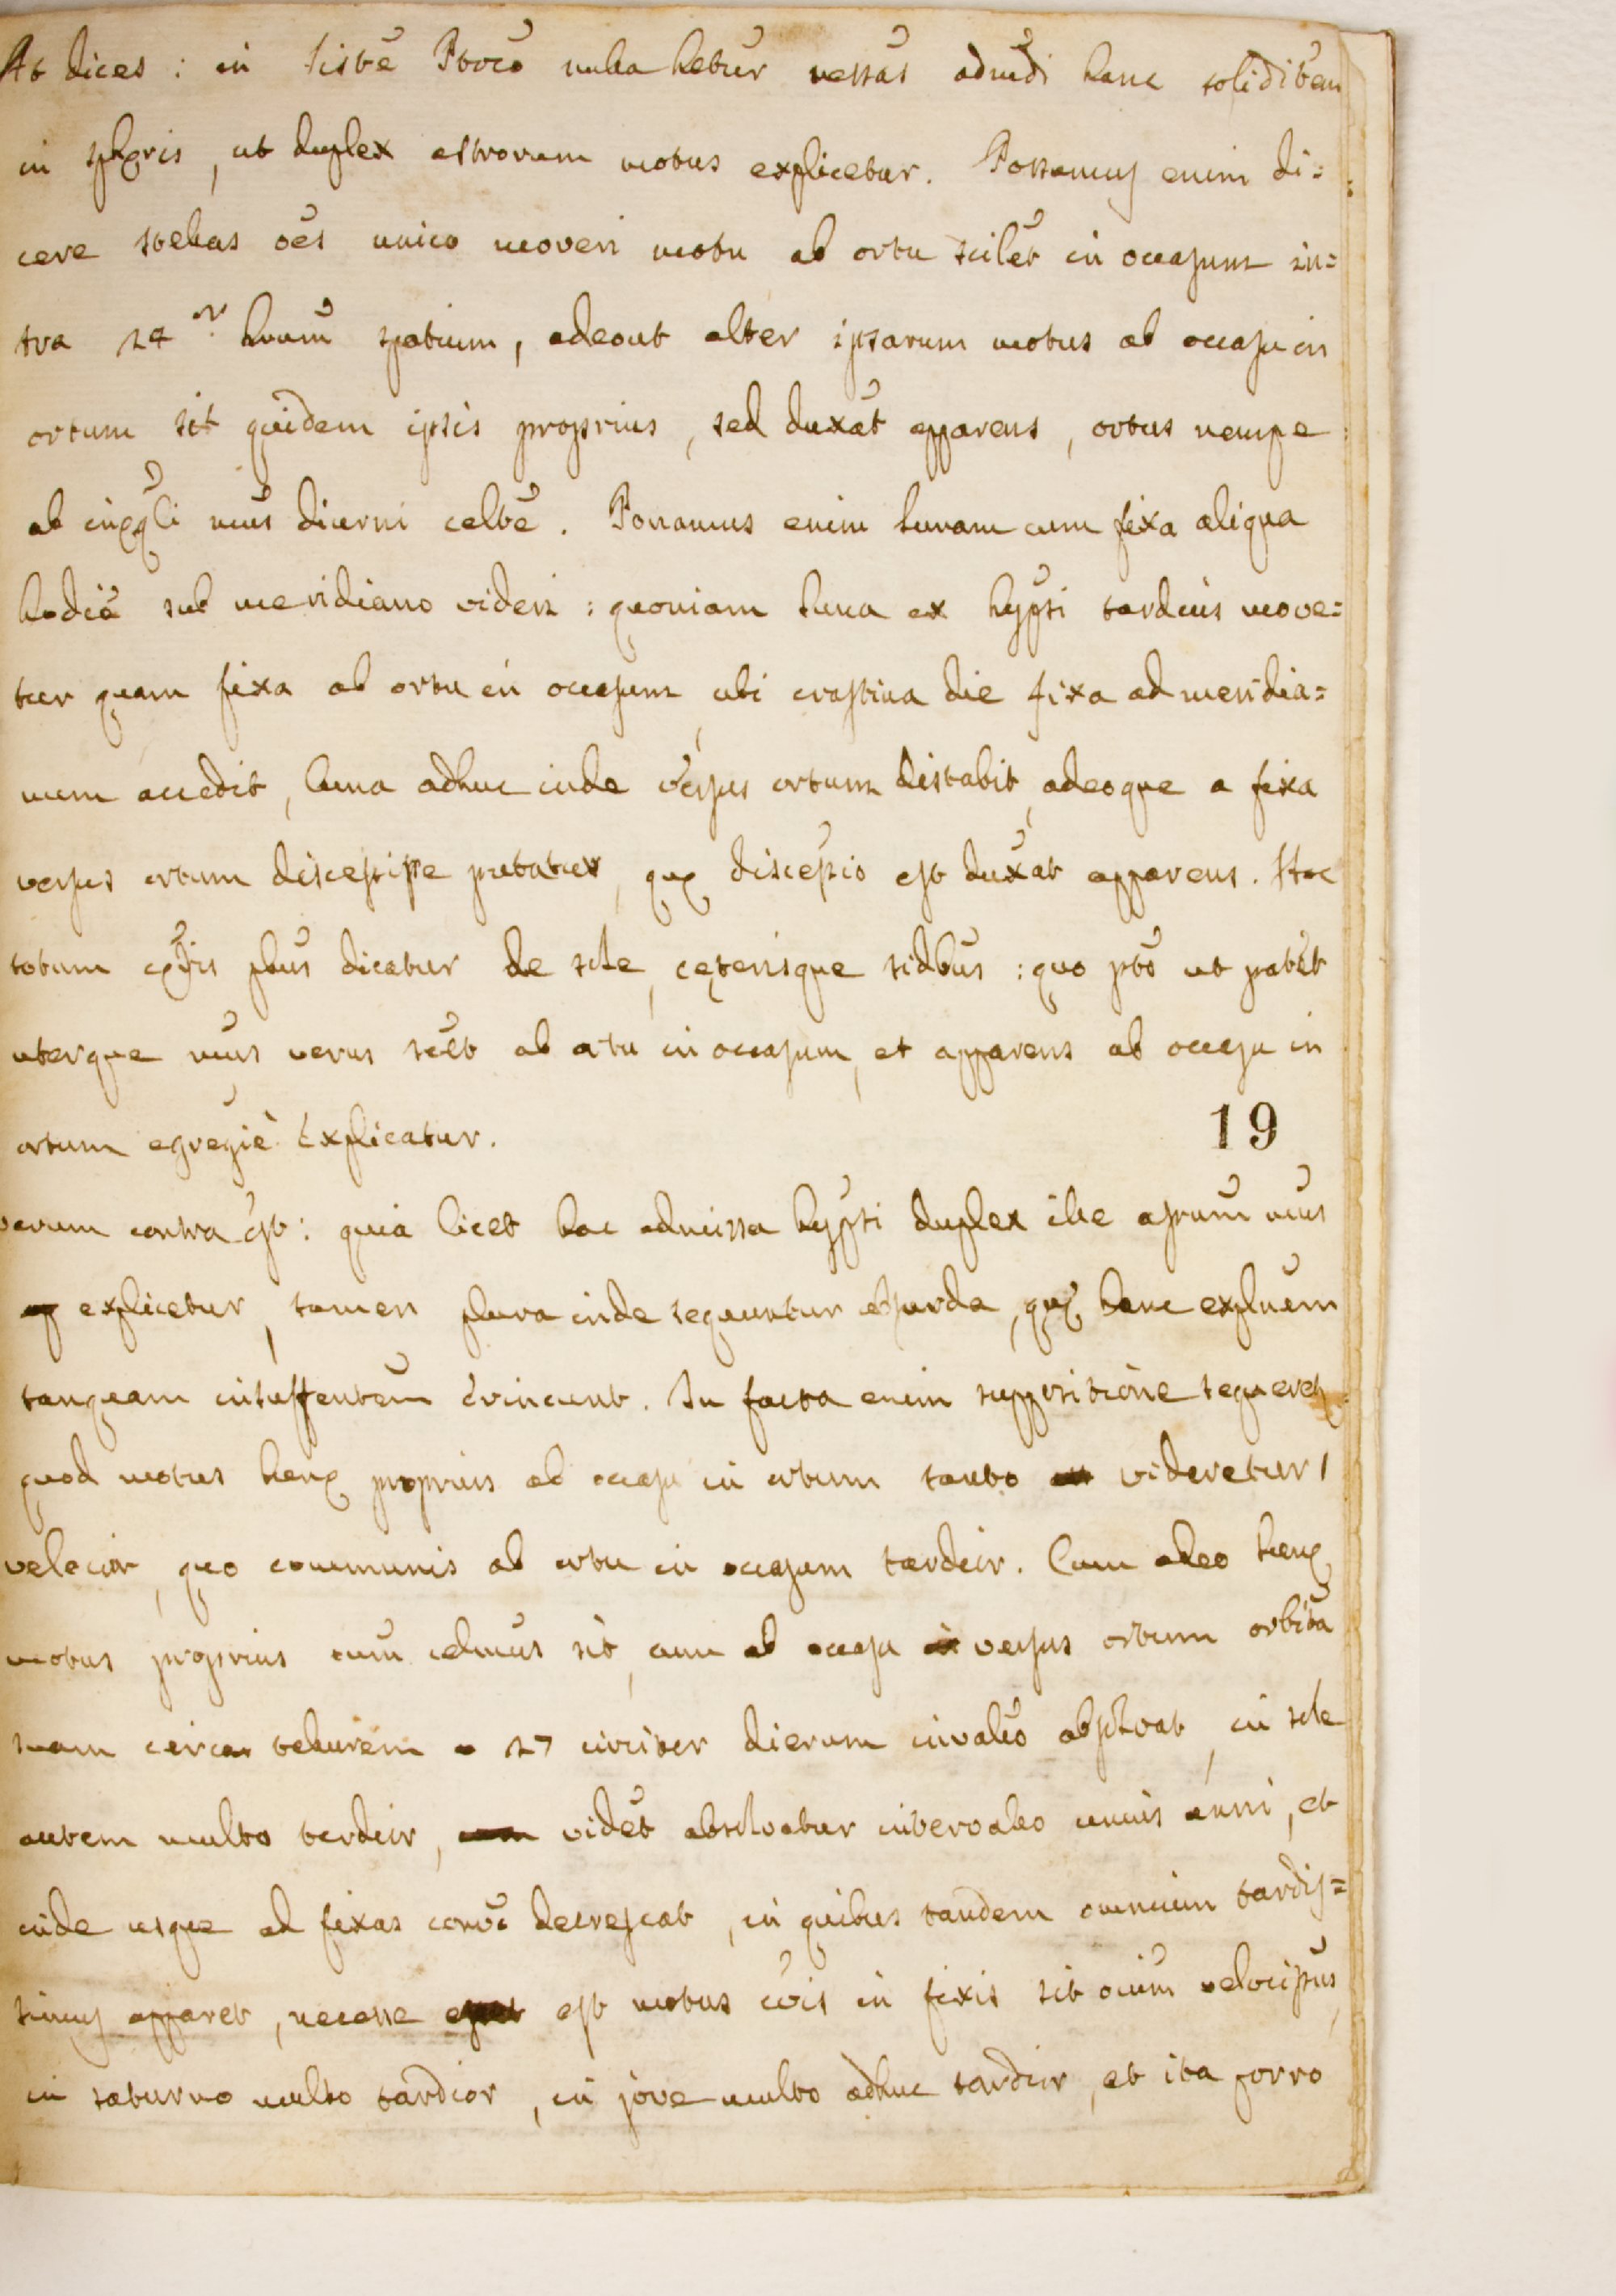 At dices : in sistẽ Ptocõ nulla hetur nessas admdi hanc soliditem
in sphęris, ut duplex astrorum motus explicetur. Possemus enim di=
cere stellas oẽs unico moveri motu ab ortu scilet in occasum in=
tra 24 horarũ spatium, adeout alter ipsarum motus ab occasu in
ortum sit quidem ipsis proprius, sed duxat apparens, ortus nempe
ab inęqli mũs diurni celtẽ. Ponamus enim lunam cum fixa aliqua
hodie sub meridiano videri : quoniam luna ex hypsi tardius move=
tur quam fixa ab ortu in occasum, ubi crastina die fixa ad meridia=
num accedit, luna adhuc inde versus ortum distabit, adeoque a fixa
versus ortum discessisse putatur, quę discessio est duxat apparens. Hoc
totum dicatur de sole, cęterisque sidbus : quo ptõ ut patet
uterque mũs verus scet ab ortu in occasum, et apparens ab occasu in
ortum egregiè explicatur.
19
verum contra est : quia licet hac admissa hypsi duplex ille astrum mũs
explicetur, tamen plura inde sequuntur absurda, quę hanc explnem
tanquam insuffentem evincunt. In facta enim suppositione sequeretur
quod motus lunę proprius ab occasu in ortum tanto videretur
velocior, quo communis ab ortu in occasum tardior. Cum adeo lunę
motus proprius cum sit, cum ab occasu versus ortum orbitã
suam circa tellurem 27 circiter dierum invallo absolvat, in sole
autem multo tardior, videt absolvatur intervallo unius anni, et
inde usque ad fixas decrescat, in quibus tandem omnium tardis=
simus apparet, necesse est motus cõis in fixis sit oium velocissus,
in saturno multo tardior, in jove multo adhuc tardior, et ita porro